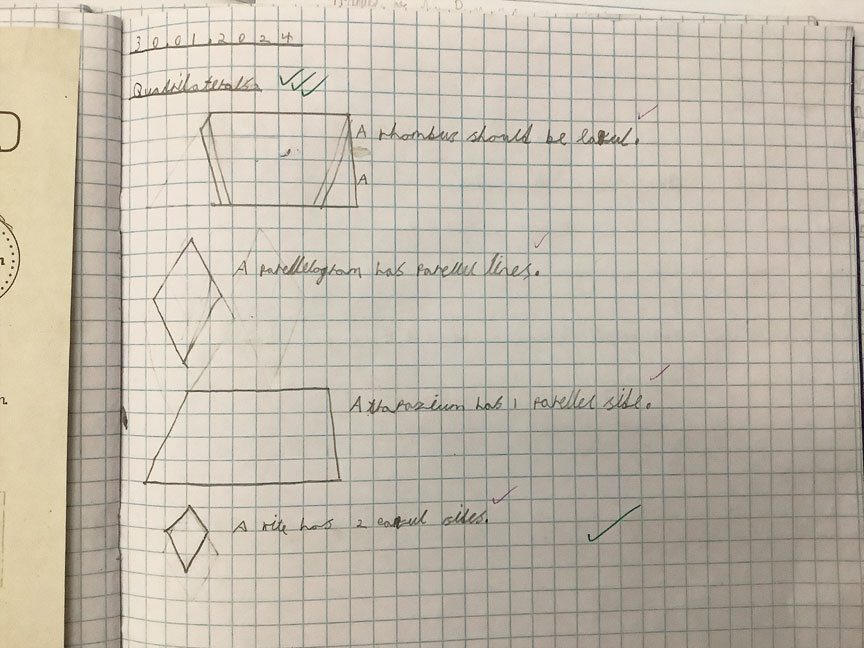 30.01.2024
Quadrilaterals.
A rhombus should be
A
A parellelogram has parellel lines.
A has 1 parellel side.
A kite has 2 sides.